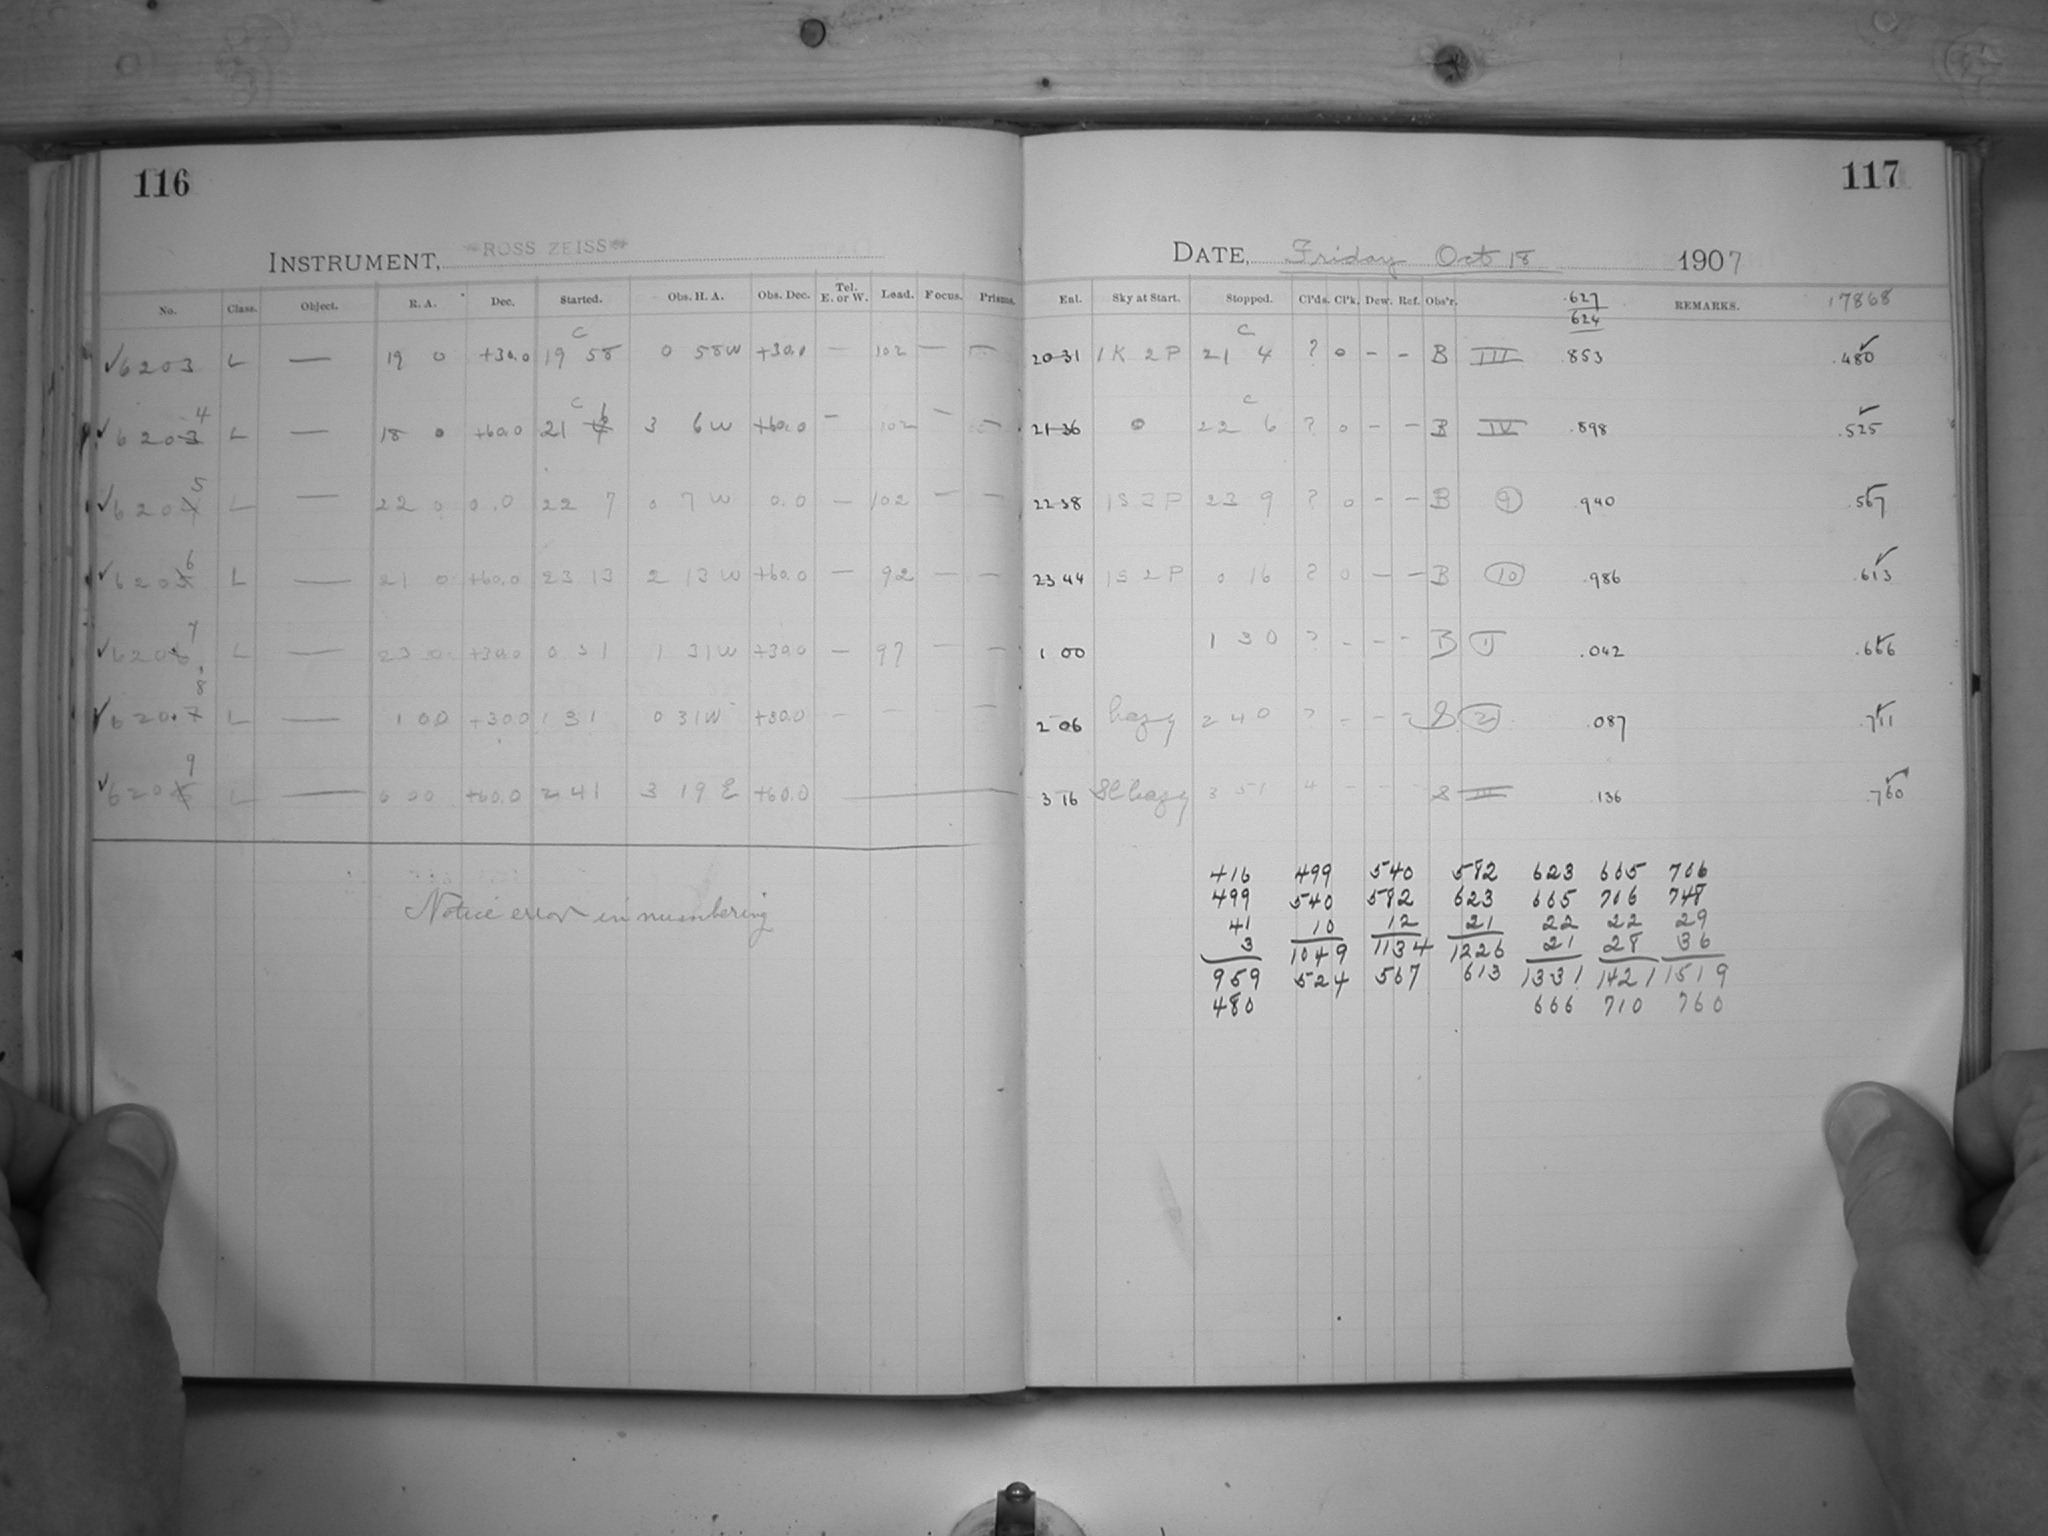 116
INSTRUMENT, ROSS ZEISS
No. Class. Object. R. A. Dec. Started. Obs. H. A. Obs. Dec. Tel. E. or W. Load. Focus. Prisms.
C
✓6203 L — 19 0 +30.0 19 58 0 58W +30.0 — 102 — —
4 C 6
✓6203 L — 18 0 +60.0 21 3 6W +60.0 — 102 — —
5
✓620 L — 22 0 0.0 22 7 0 7W 0.0 — 102 — —
6
✓6205 L — 21 0 +60.0 23 13 2 13W +60.0 — 92 — —
7
✓6206 L — 23 0 +30.0 0 31 1 31W +30.0 — 97 — —
8
✓6207 L — 1 00 +30.0 1 31 0 31W +30.0 — — — —
9
✓620 L — 6 00 +60.0 2 41 3 19 E +60.0 —
Notice error in numbering
117
DATE, Friday Oct 18 1907
Enl. Sky at Start. Stopped. Cl'ds. Cl'k. Dew. Ref. Obs'r. .627 REMARKS. 17868
624
C
20 31 1K 2P 21 4 ? 0 - - B III .853 .480
C
21 36 0 22 6 ? 0 - - B IV .898 .525
22 38 1S 2P 23 9 ? 0 - - B 9 .940 .567
23 44 1S 2P 0 16 ? 0 - - B 10 .986 .613
1 00 1 30 ? - - - B 1 .042 .666
2 06 hazy 2 40 ? - - - S 2 .087 .711
3 16 Sl hazy 3 51 4 - - - S III .136 .760
416 499 540 582 623 665 706
499 540 582 623 665 706 748
41 10 12 21 22 22 29
3 1049 1134 1226 21 28 36
959 524 567 613 1331 1421 1519
480 666 710 760